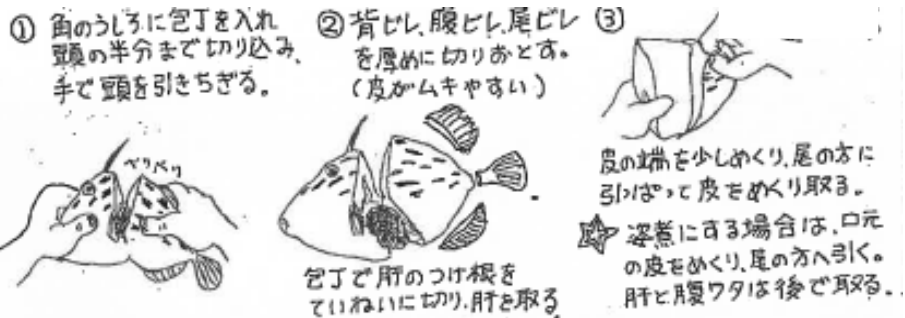 ① 角のうしろに包丁を入れ
頭の半分まで切り込み、
手で頭を引きちぎる。
ベリベリ
② 背ビレ、腹ビレ、尾ビレ
を厚めに切りおとす。
(皮がムキやすい)
包丁で肝のつけ根を
ていねいに切り、肝を取る
③
皮の端を少しめくり、尾の方に
引っぱって皮をめくり取る。
☆ 姿煮にする場合は、口元
の皮をめくり、尾の方へ引く。
肝と腹ワタは後で取る。